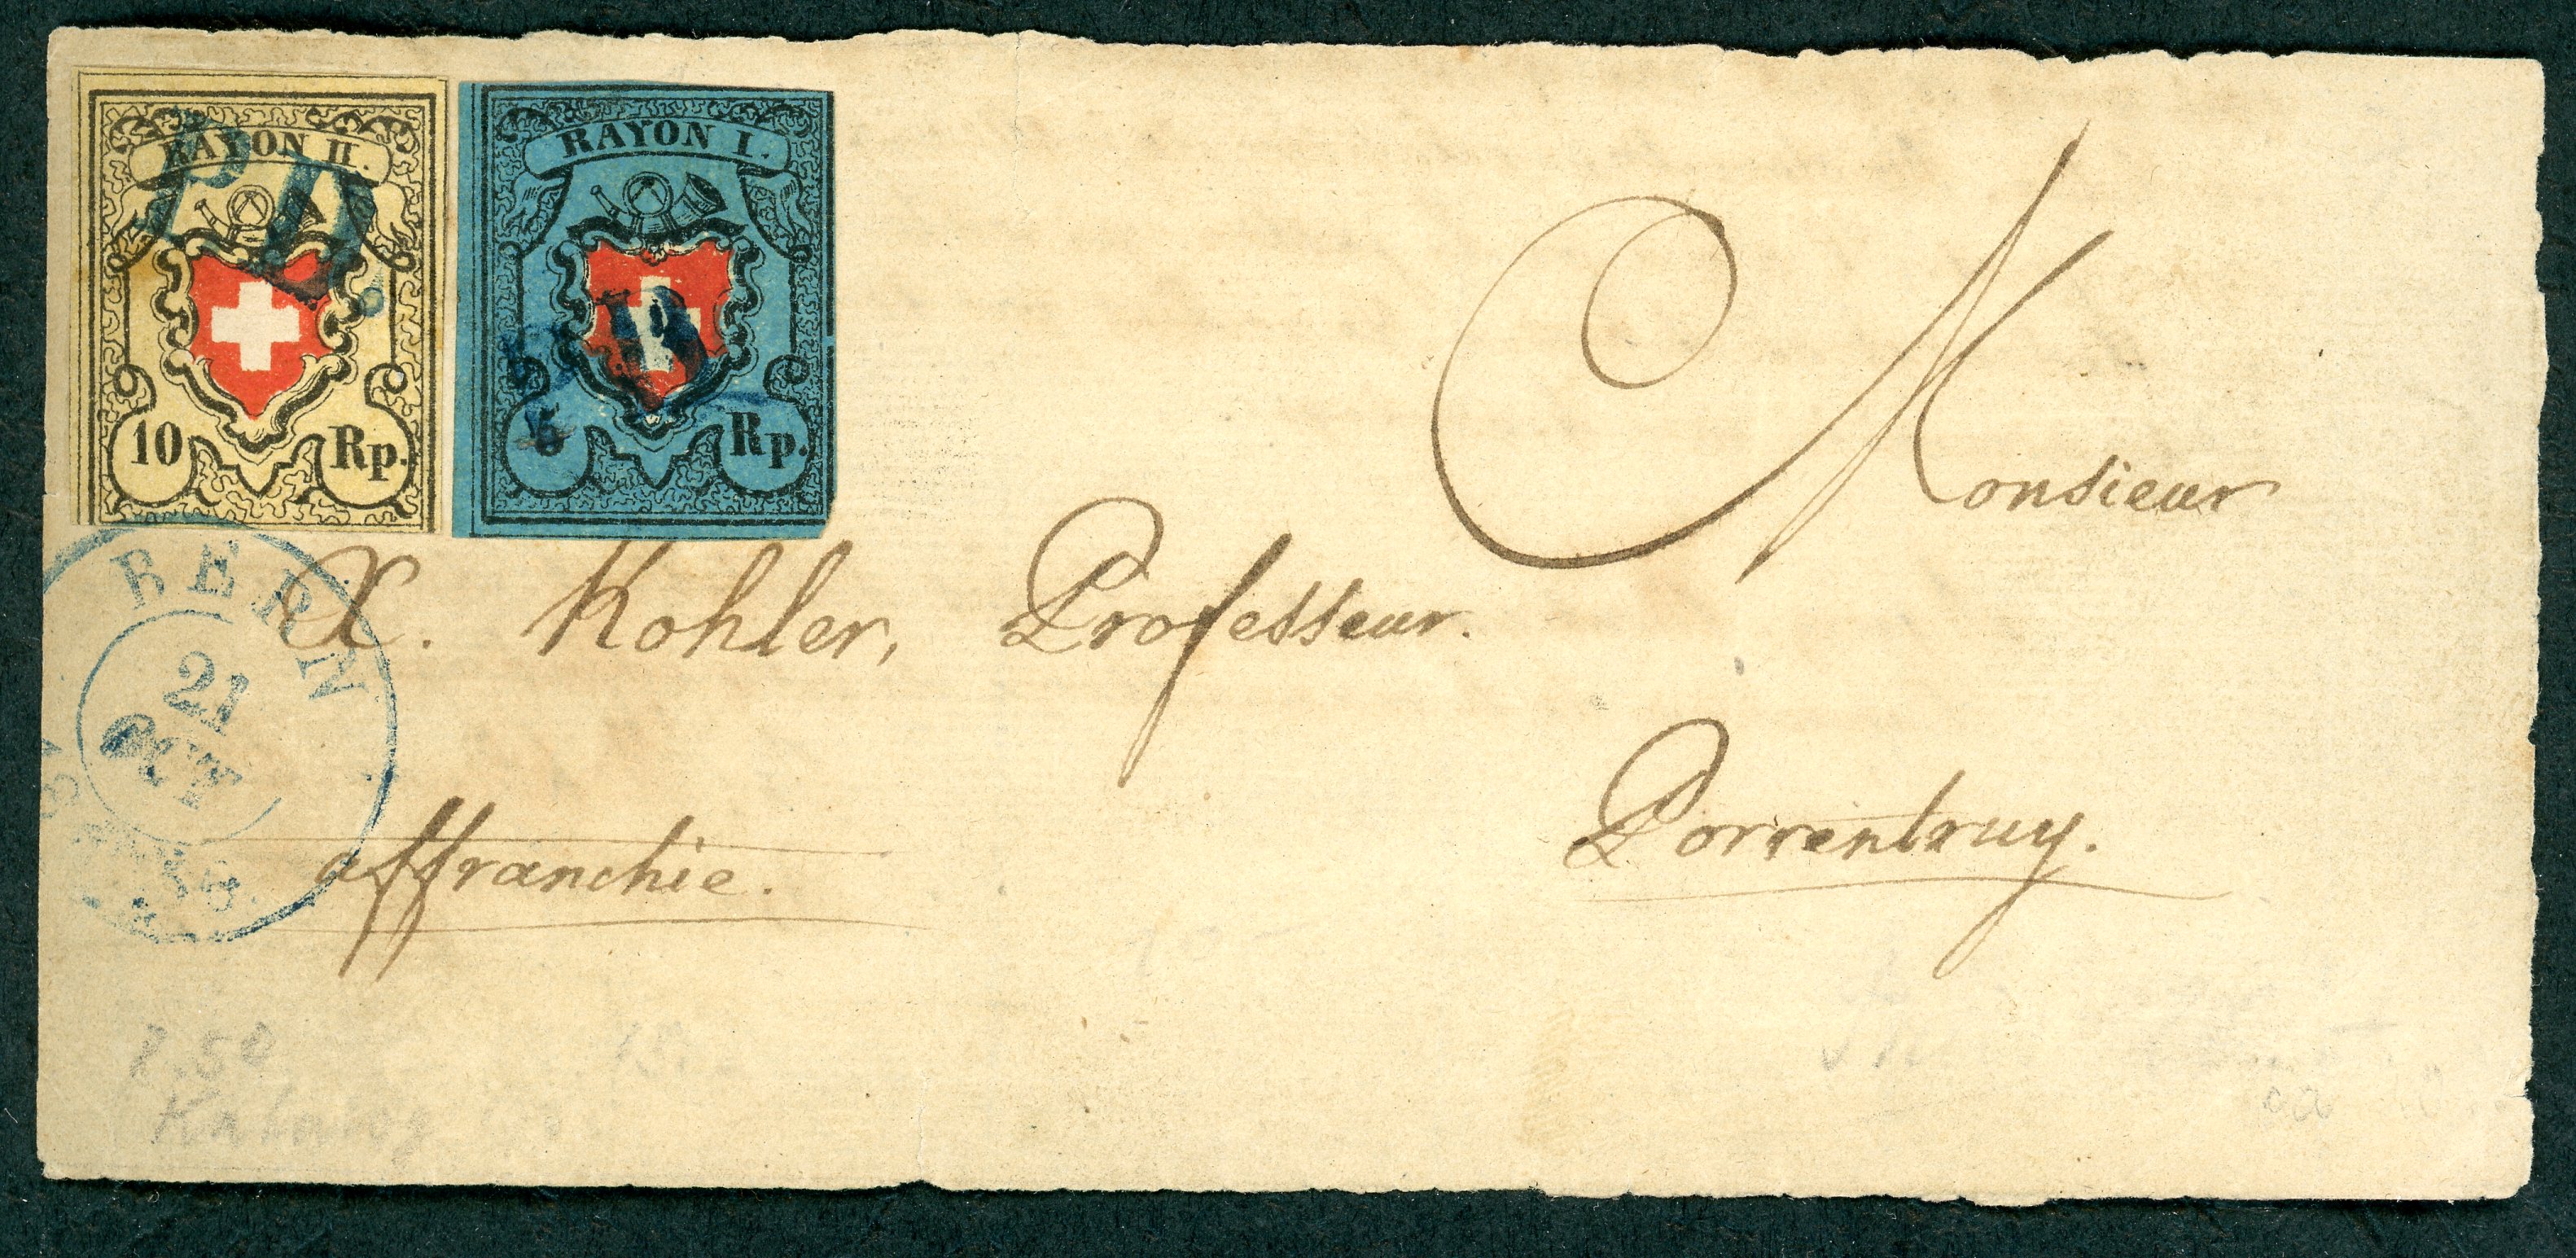 RAYON II.
P.D.
10 Rp.
RAYON I.
P.D.
5 Rp.
Monsieur
X. Kohler, Professeur.
Porrentruy.
affranchie.
BERN
21
OCT
7.50
Katalog